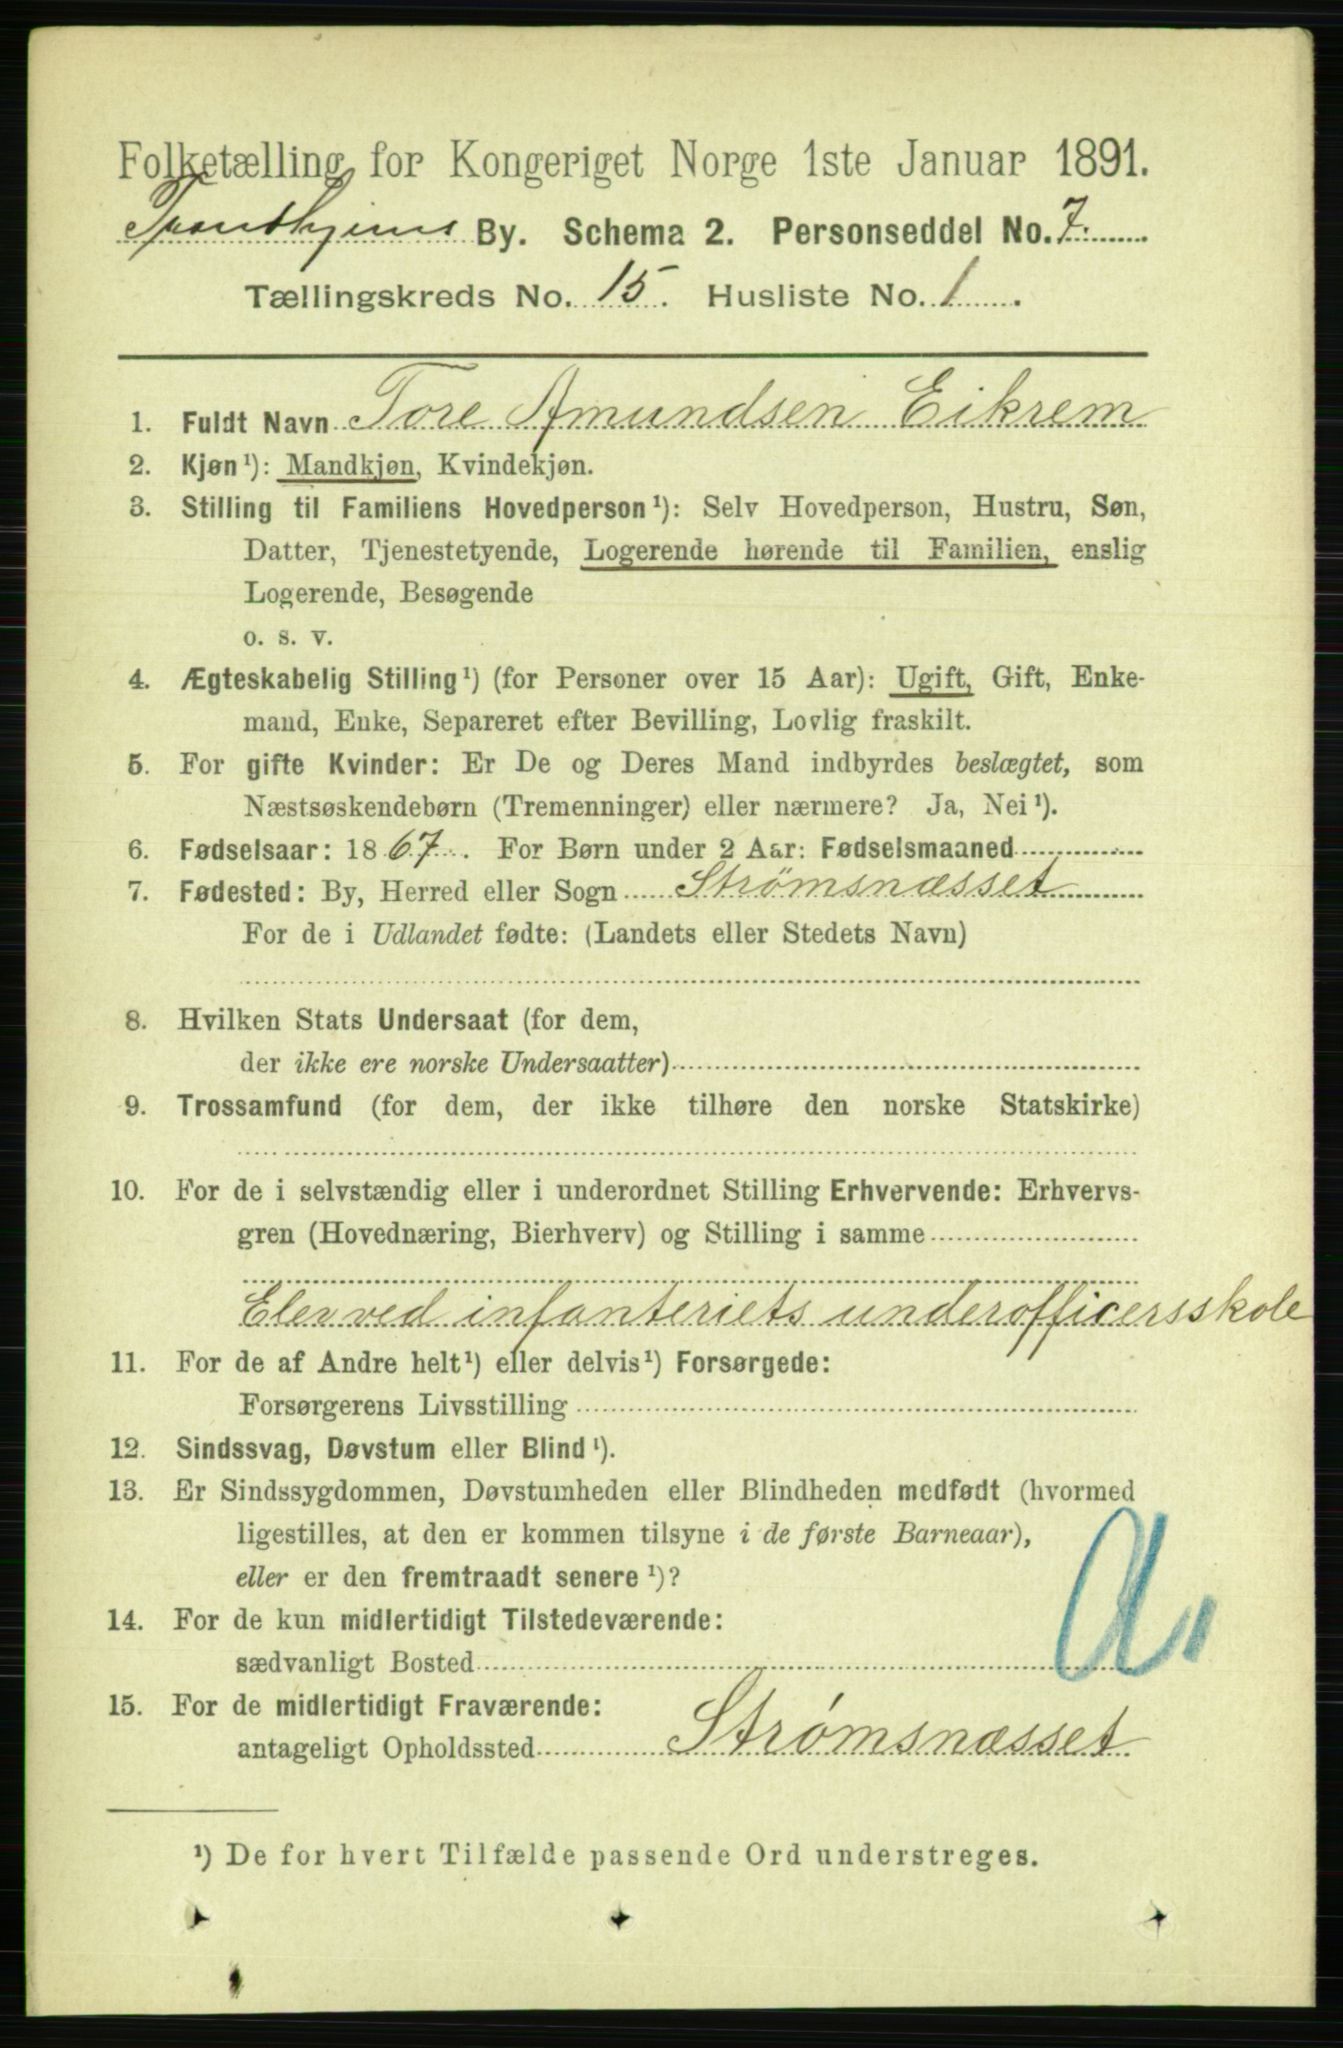 Folketælling for Kongeriget Norge 1ste Januar 1891.
Trondhjems By. Schema 2. Personseddel No. 7.
Tællingskreds No. 15. Husliste No. 1.
1. Fuldt Navn Tore Amundsen Eikrem
2. Kjøn¹): Mandkjøn, Kvindekjøn.
3. Stilling til Familiens Hovedperson¹): Selv Hovedperson, Hustru, Søn,
Datter, Tjenestetyende, Logerende hørende til Familien, enslig
Logerende, Besøgende
o. s. v.
4. Ægteskabelig Stilling¹) (for Personer over 15 Aar): Ugift, Gift, Enke-
mand, Enke, Separeret efter Bevilling, Lovlig fraskilt.
5. For gifte Kvinder: Er De og Deres Mand indbyrdes beslægtet, som
Næstsøskendebørn (Tremenninger) eller nærmere? Ja, Nei¹).
6. Fødselsaar: 1867. For Børn under 2 Aar: Fødselsmaaned
7. Fødested: By, Herred eller Sogn Strømsnæsset
For de i Udlandet fødte: (Landets eller Stedets Navn)
8. Hvilken Stats Undersaat (for dem,
der ikke ere norske Undersaatter)
9. Trossamfund (for dem, der ikke tilhøre den norske Statskirke)
10. For de i selvstændig eller i underordnet Stilling Erhvervende: Erhvervs-
gren (Hovednæring, Bierhverv) og Stilling i samme
Elev ved infanteriets underofficersskole
11. For de af Andre helt¹) eller delvis¹) Forsørgede:
Forsørgerens Livsstilling
12. Sindssvag, Døvstum eller Blind¹).
13. Er Sindssygdommen, Døvstumheden eller Blindheden medfødt (hvormed
ligestilles, at den er kommen tilsyne i de første Barneaar),
eller er den fremtraadt senere¹)?
14. For de kun midlertidigt Tilstedeværende:
sædvanligt Bosted
15. For de midlertidigt Fraværende:
antageligt Opholdssted Strømsnæsset
¹) De for hvert Tilfælde passende Ord understreges.